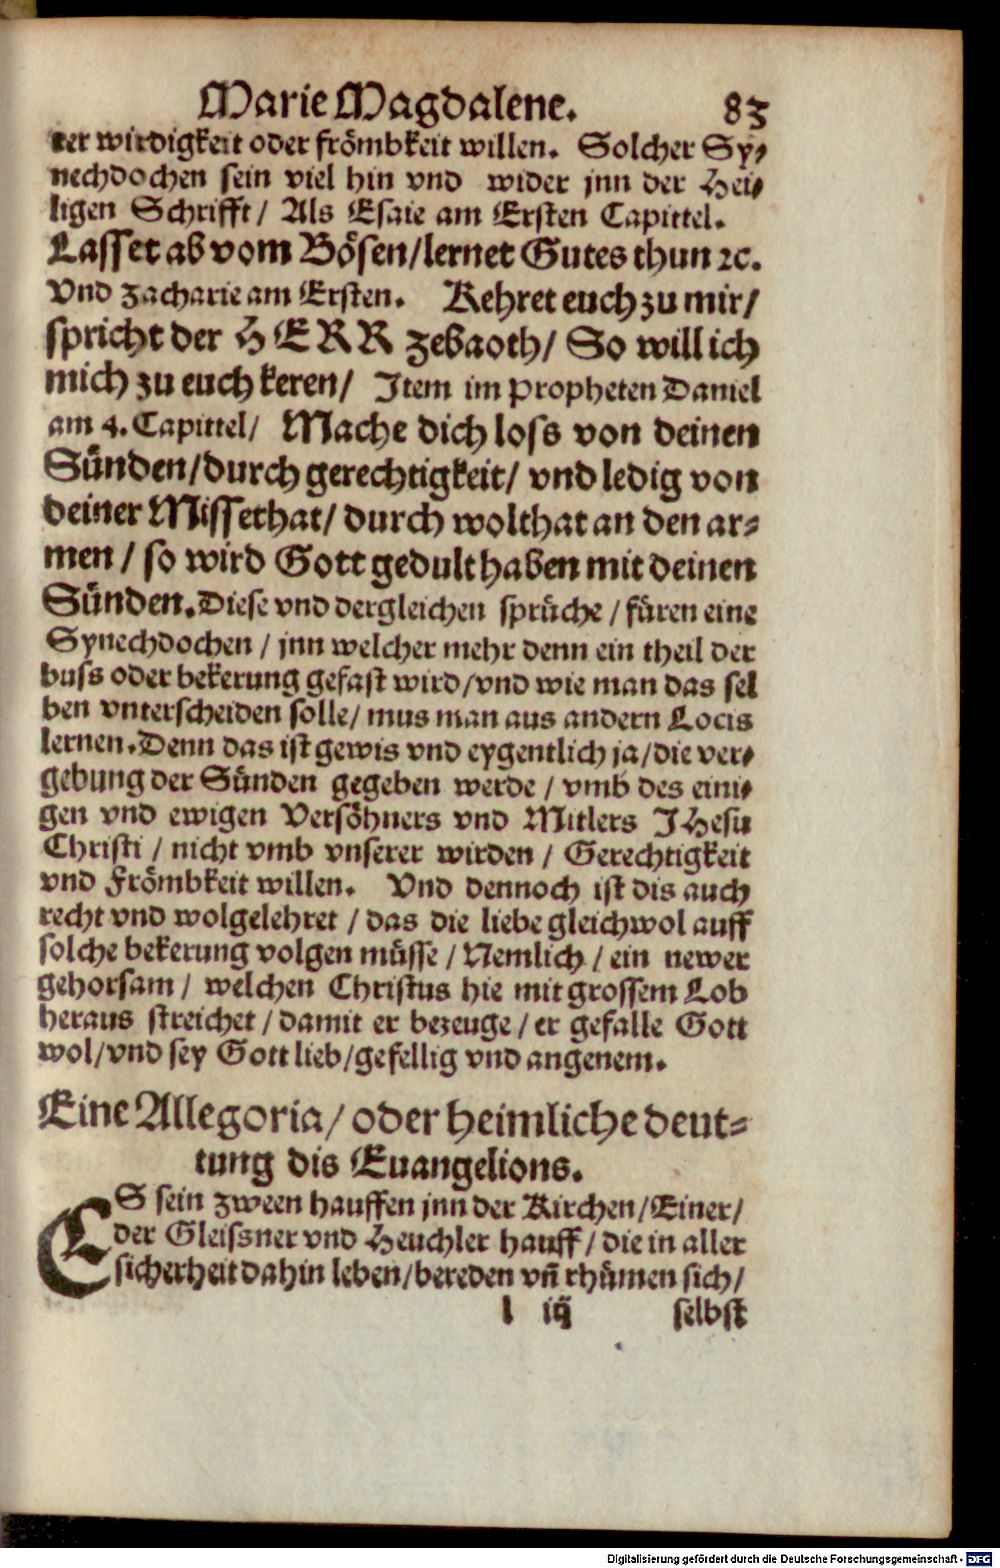 Marie Magdalene. 83
rer wirdigkeit oder frömbkeit willen. Solcher Sy⸗
nechdochen sein viel hin vnd wider jnn der Hei⸗
ligen Schrifft/ Als Esaie am Ersten Capittel.
Lasset ab vom Bösen/lernet Gutes thun ꝛc.
Vnd Zacharie am Ersten. Kehret euch zu mir/
spricht der HERR Zebaoth/ So will ich
mich zu euch keren/ Item im Propheten Daniel
am 4. Capittel/ Mache dich loss von deinen
Sünden/durch gerechtigkeit/ vnd ledig von
deiner Missethat/ durch wolthat an den ar⸗
men/ so wird Gott gedult haben mit deinen
Sünden. Diese vnd dergleichen sprüche/ füren eine
Synechdochen/ jnn welcher mehr denn ein theil der
buss oder bekerung gefast wird/vnd wie man das sel
ben vnterscheiden solle/ mus man aus andern Locis
lernen. Denn das ist gewis vnd eygentlich ja/die ver⸗
gebung der Sünden gegeben werde/ vmb des eini⸗
gen vnd ewigen Versöhners vnd Mitlers JHesu
Christi/ nicht vmb vnserer wirden/ Gerechtigkeit
vnd Frömbkeit willen. Vnd dennoch ist dis auch
recht vnd wolgelehret/ das die liebe gleichwol auff
solche bekerung volgen müsse/ Nemlich/ ein newer
gehorsam/ welchen Christus hie mit grossem Lob
heraus streichet/ damit er bezeuge/ er gefalle Gott
wol/vnd sey Gott lieb/gefellig vnd angenem.
Eine Allegoria/ oder heimliche deut⸗
tung dis Euangelions.
ES sein zween hauffen jnn der Kirchen/Einer/
der Gleissner vnd Heuchler hauff/ die in aller
sicherheit dahin leben/bereden vñ rhümen sich/
l iij selbst
Digitalisierung gefördert durch die Deutsche Forschungsgemeinschaft - DFG